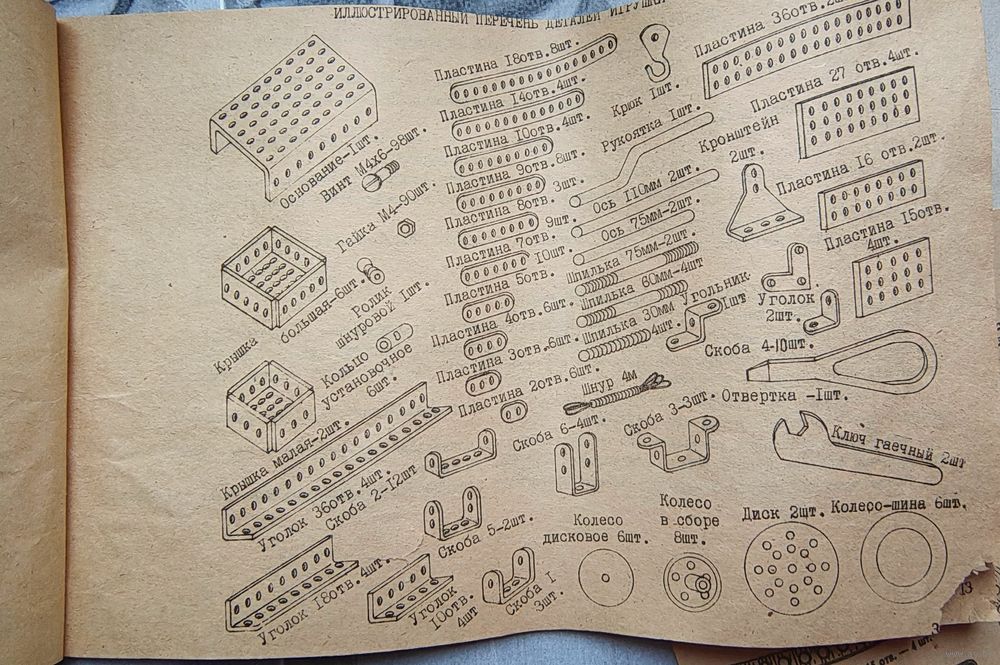 ИЛЛЮСТРИРОВАННЫЙ ПЕРЕЧЕНЬ ДЕТАЛЕЙ ИГРУШКИ
Основание-1шт.
Винт М4х6-98шт.
Гайка М4-90шт.
Крышка большая-6шт.
Ролик
шнуровой 1шт.
Кольцо
установочное
6шт.
Крышка малая-2шт.
Уголок 36отв.4шт.
Скоба 2-12шт
Уголок 18отв.4шт.
Уголок
10отв.
4шт
Скоба 5-2шт.
Скоба 1
3шт.
Пластина 18отв.8шт.
Пластина 14отв.4шт.
Пластина 10отв.4шт.
Пластина 9отв.8шт.
Пластина 8отв. 3шт.
Пластина 7отв. 9шт.
Пластина 5отв. 10шт.
Пластина 4отв.6шт.
Пластина 3отв.6шт.
Пластина 2отв.6шт.
Крюк 1шт.
Рукоятка 1шт.
Ось 110мм 2шт.
Ось 75мм-2шт.
Шпилька 75мм-2шт.
Шпилька 60мм-4шт
Шпилька 30мм
4шт.
Шнур 4м
Угольник
1шт
Скоба 6-4шт.
Скоба 3-3шт.
Пластина 36отв.2
Пластина 27 отв.4шт.
Кронштейн
2шт.
Пластина 16 отв.2шт.
Пластина 15отв.
4шт.
Уголок
2шт.
Скоба 4-10шт.
Отвертка -1шт.
Ключ гаечный 2шт
Колесо
дисковое 6шт.
Колесо
в сборе
8шт.
Диск 2шт.
Колесо-шина 6шт.
13
отв. — 4 шт.